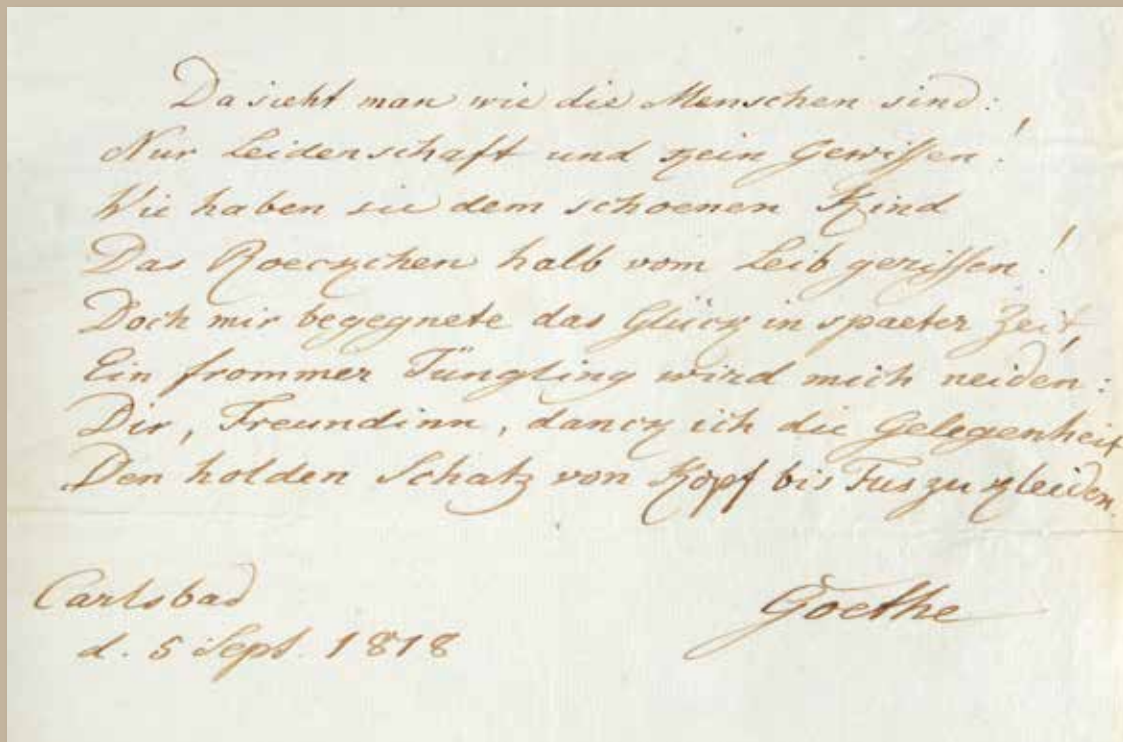 Da sieht man wie die Menschen sind:
Nur Leidenschaft und kein Gewissen!
Wie haben sie dem schoenen Kind
Das Roeckchen halb vom Leib gerissen!
Doch mir begegnete das Glück in spaeter Zeit,
Ein frommer Jüngling wird mich neiden:
Dir, Freundinn, danck ich die Gelegenheit
Den holden Schatz von Kopf bis Fus zu kleiden.
Carlsbad
d. 5 Sept. 1818
Goethe